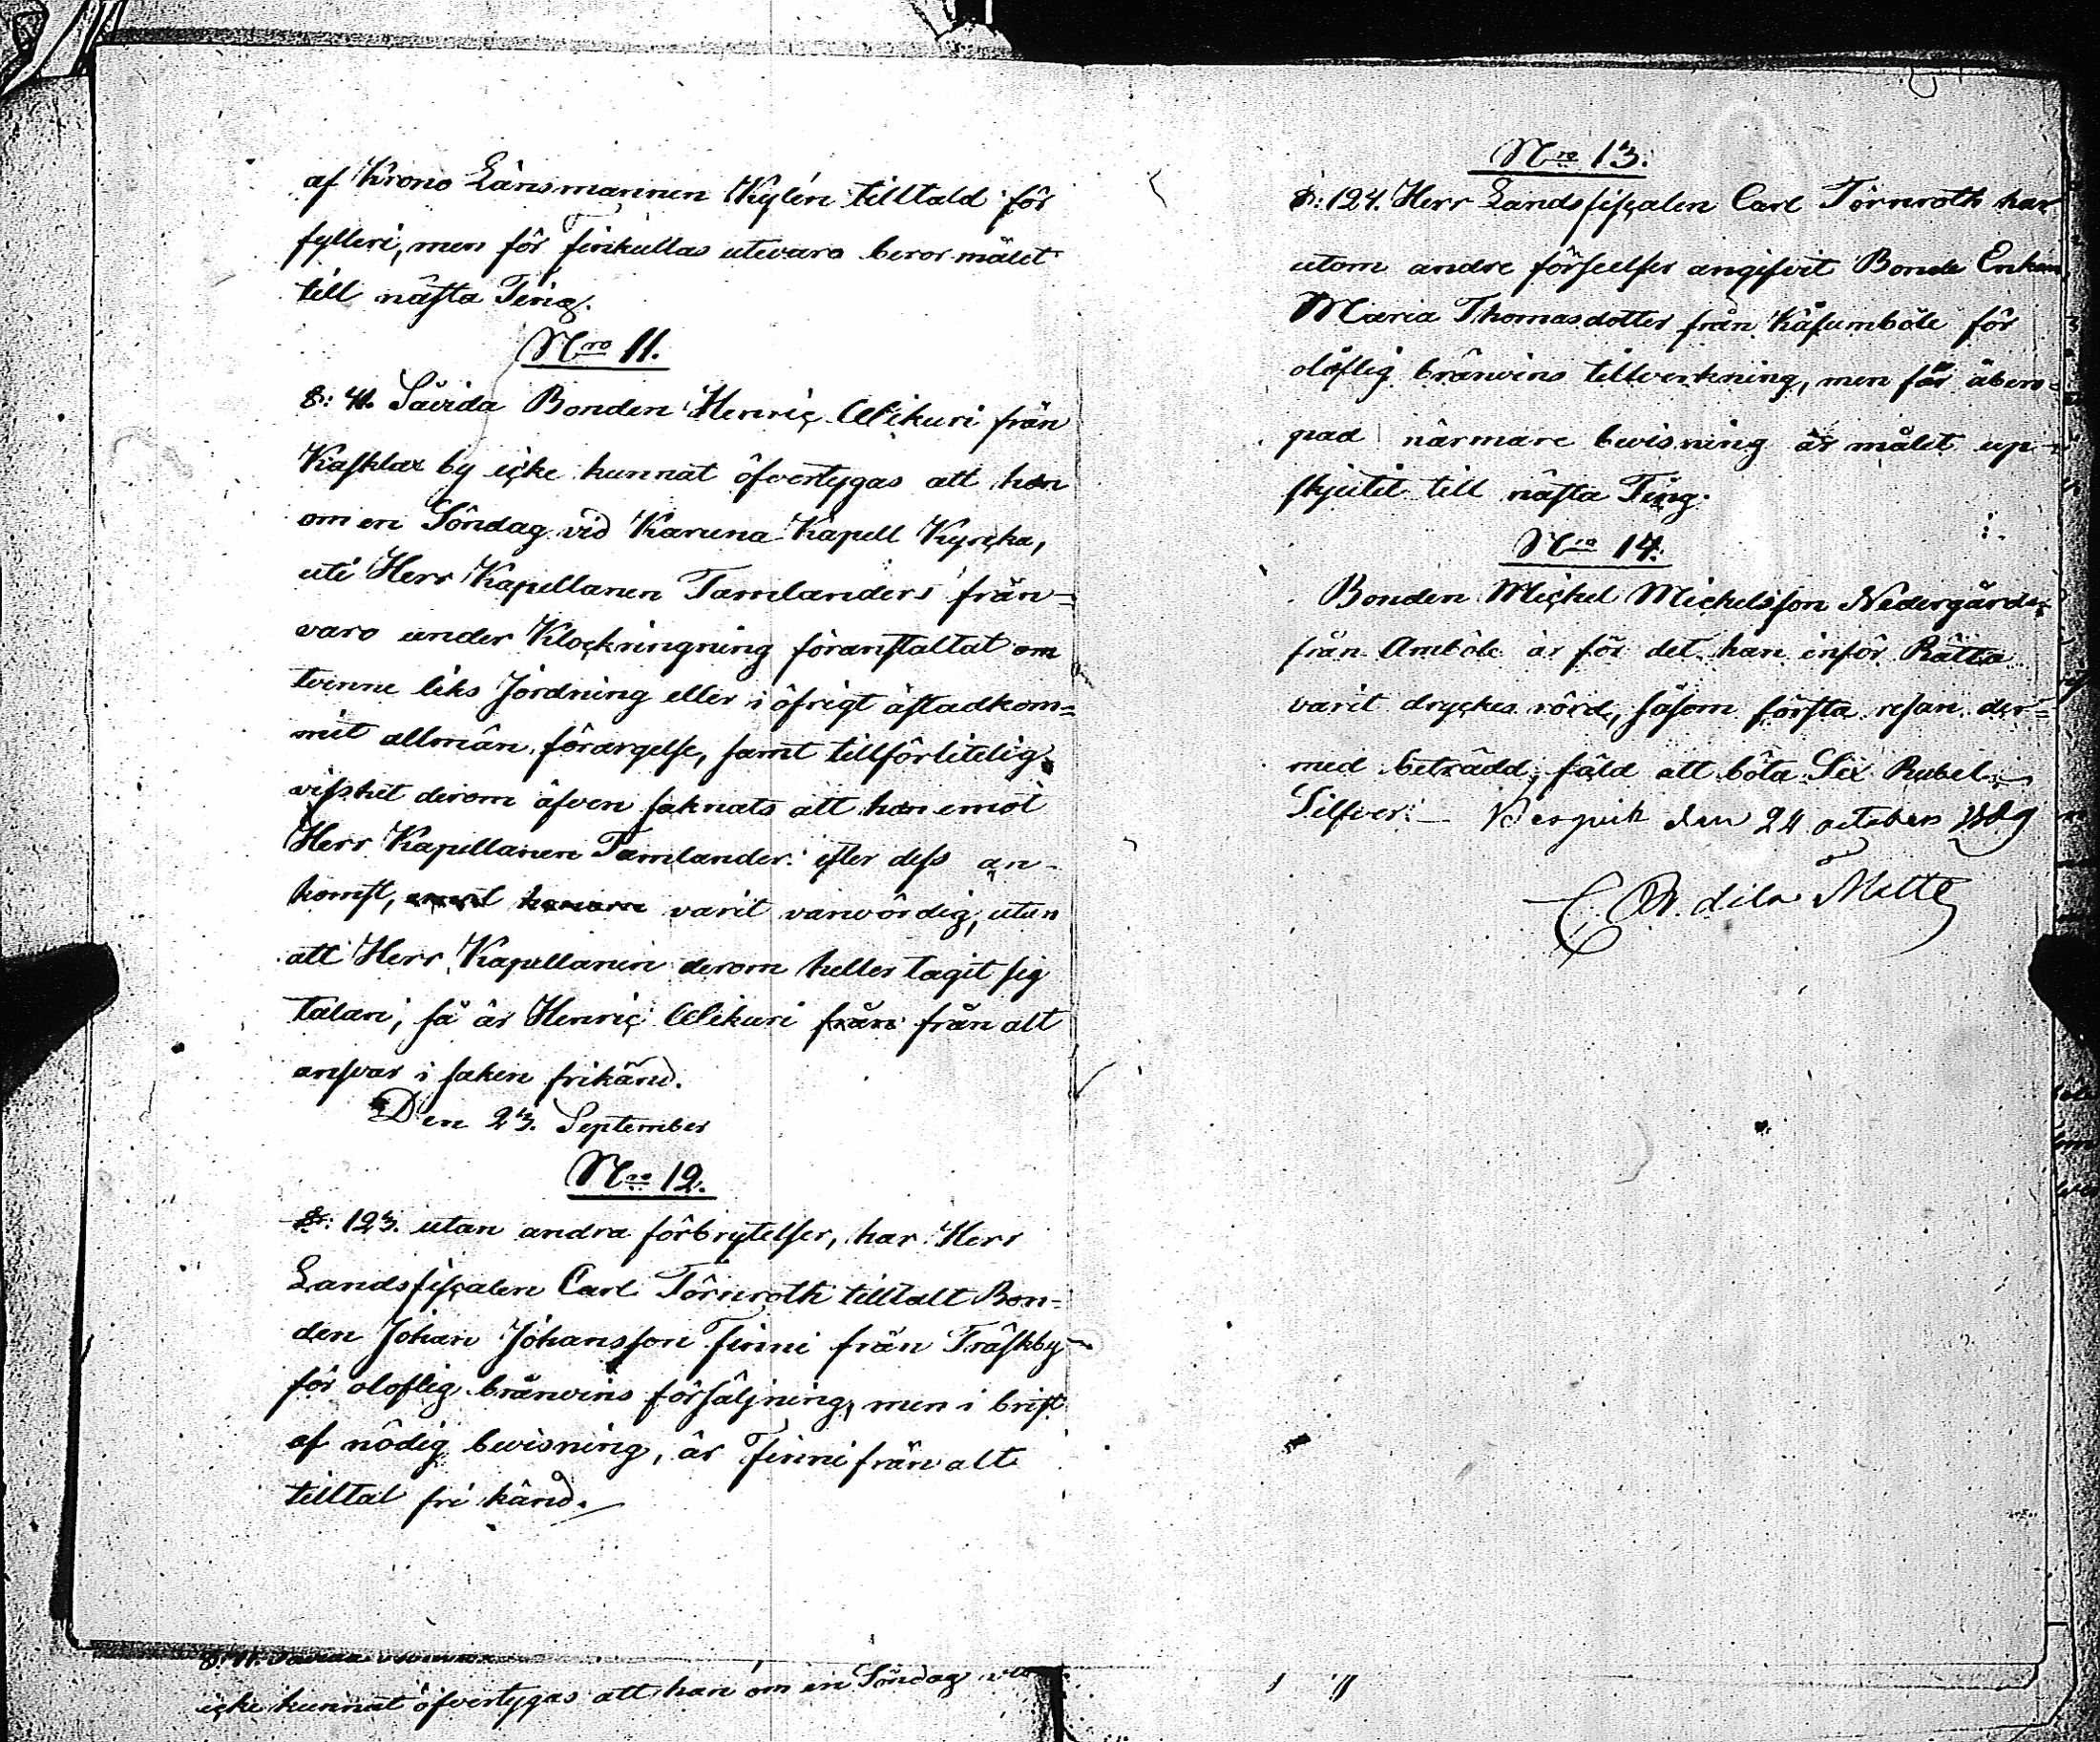 af Krono Länsmannen Kylén tilltald för
fylleri, men för finkullas utevaro beror målet
till nästa Ting.
Nro 11.
§: 41. Såvida Bonden Henric Alikuri från
Kasklax by icke kunnat öfvertygas att han
om en Söndag vid Karuna Kapell Kyrcka,
uti Herr Kapellanen Tamlanders från=
varo under Klockringning föranstaltat om
tvenne liks Jordning eller i öfrigt åstadkom=
mit allmän förargelse, samt tillförlitelig
visshet derom äfven saknats att han emot
Herr Kapellanen Tamlander efter dess an-
komst, varit vanvördig, utan
att Herr Kapellanen derom heller tagit sig
talan; så är Henric Alikuri från från alt
ansvar i saken frikänd.
Den 23. September
Nro 12.
§: 123. utan andra förbrytelser, har Herr
Landsfiscalen Carl Törnroth tilltalt Bon=
den Johan Johansson Finni från Träskby
för oloflig bränvins försäljning, men i brist
af nödig bevisning, är Finni från alt
tilltal fri känd.
icke kunnat öfvertygas att han om en Söndag
Nro 13.
§: 124. Herr Landsfiscalen Carl Törnroth har
utom andre förseelser angifvit Bonde Enkan
Maria Thomasdotter från Kåsumböle för
olåflig bränvins tillverkning, men för åbero=
pad närmare bevisning är målet up-
skjutit till nästa Ting.
Nro 14.
Bonden Mickel Mickelsson Nedergård
från Amböle är för det han inför Rätta
varit dryckes rörd, såsom första resan der=
med beträdd, fäld att böta Sex Rubel
Silfver. den 24 october